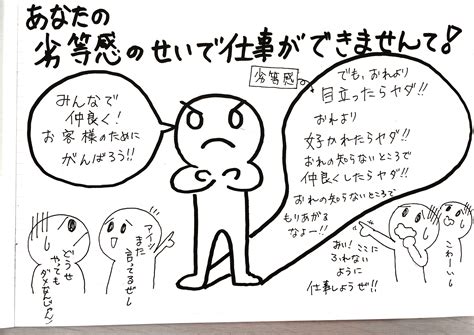 あなたの
劣等感のせいで仕事ができませんて!
みんなで
仲良く!
お客様のために
がんばろう!!
劣等感
でも、おれより
目立ったらヤダ!!
おれより
好かれたらヤダ!!
おれの知らないところで
仲良くしたらヤダ!!
おれの知らないところで
もりあがる
なよー!!
どうせ
やっても
ダメなんじゃん
アイツ
また
言ってるぜ
おい!ここに
ふれない
ように
仕事しようぜ!!
こわーいっ